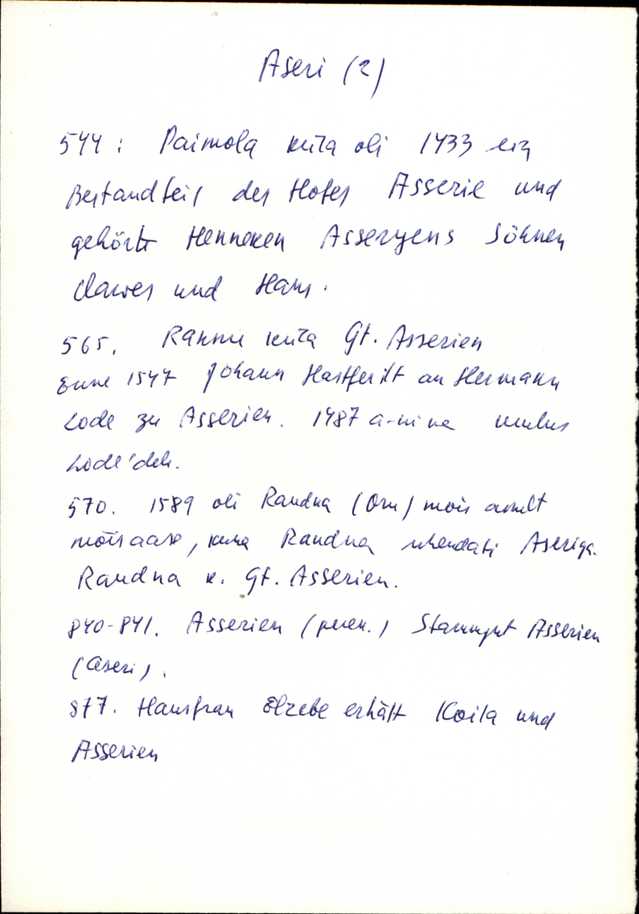 Aseri (2)
544: Paimola küla oli 1433 ein
Bestandteil des Hofes Asserie und
gehörte Henneken Asseryens Söhnen
Clawes und Hans.
565. Rannu küla Gt. Asserien
Enne 1547 Johann Hastfer at an Hermann
Lode zu Asserien. 1487 a-ni va
Lode'del.
570. 1589 oli Randna (Oru) mõis
mõisaase, kuna Randna ühendati Aseriga.
Randna k. Gt. Asserien.
840-841. Asserien (perek.) Stammgut Asserien
(Aseri).
877. Hausfrau Elzebe erhält Koila und
Asserien